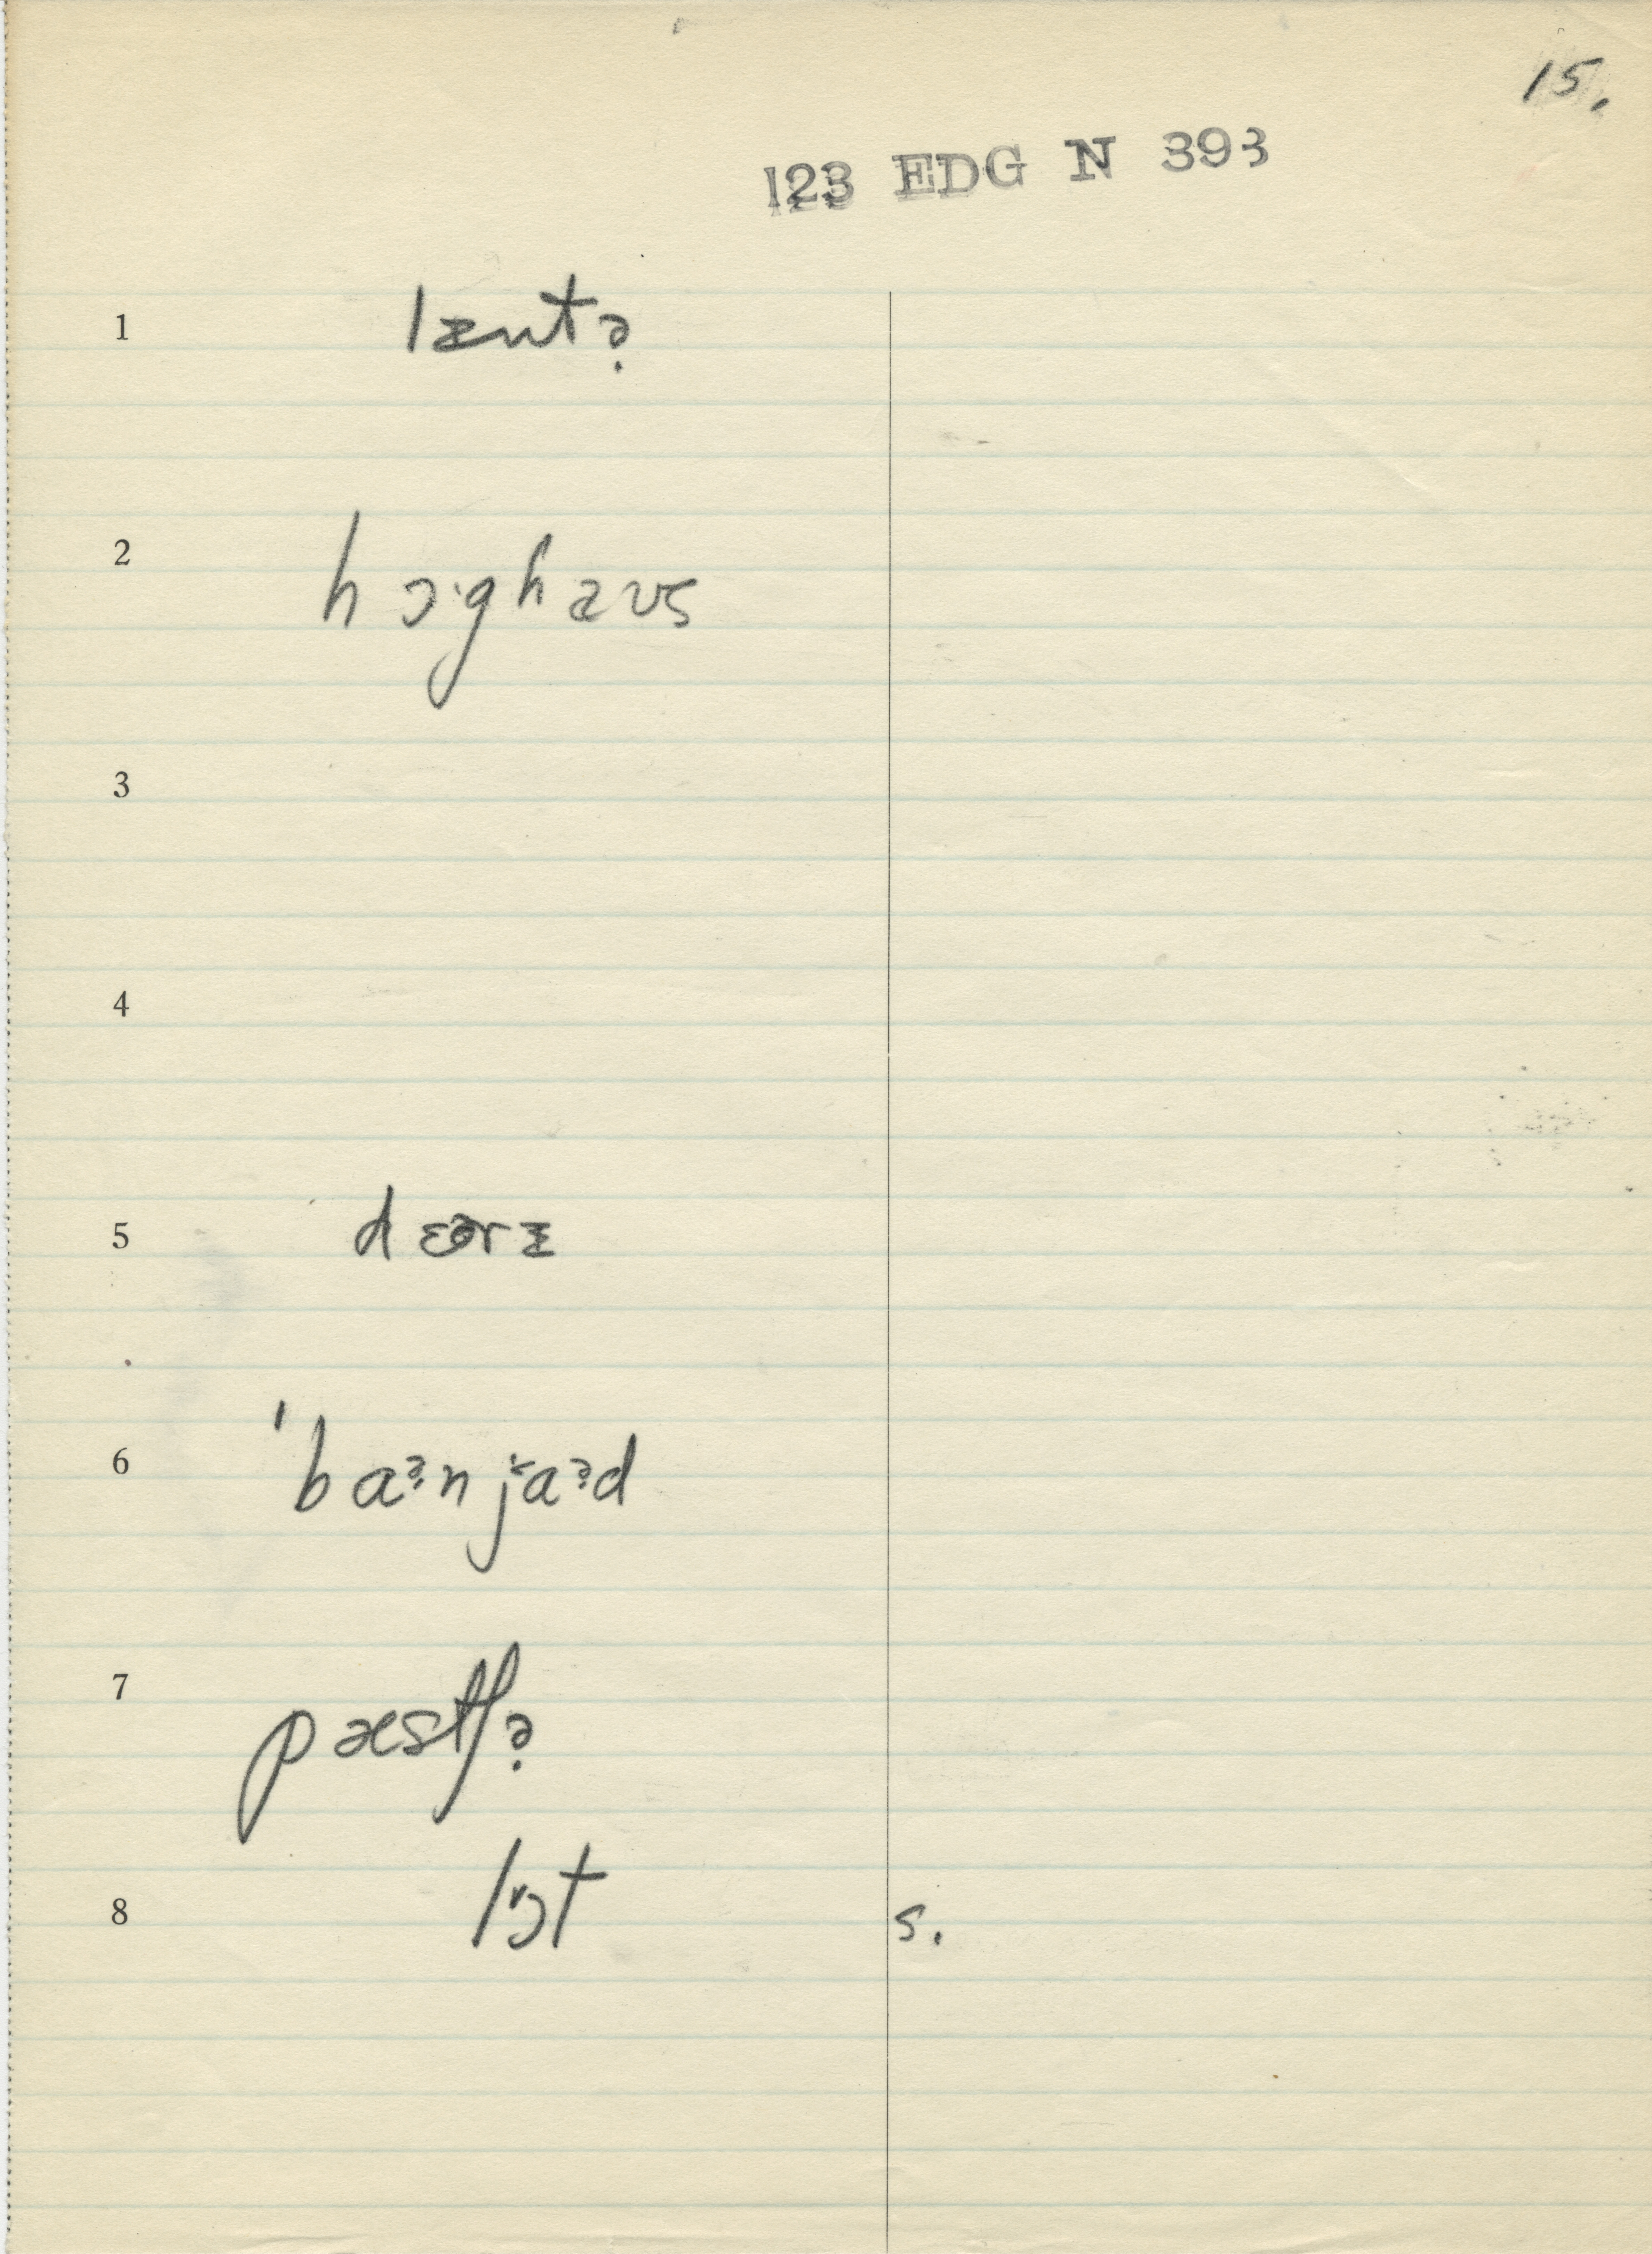 15.
123 EDG N 393
1 lɛntə̣
2 hɔ·ghaʊs
3
4
5 dɛərɪ
6 'baə̣njaəd
7 pæstʃə̣
8 lɔt s.